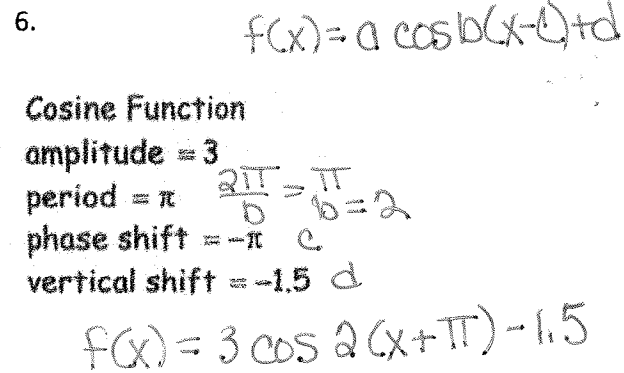 6.
f(x) = a cos b(x-c)+d
Cosine Function
amplitude = 3
period = π 2π/b = π b = 2
phase shift = -π c
vertical shift = -1.5 d
f(x) = 3 cos 2(x+π) - 1.5